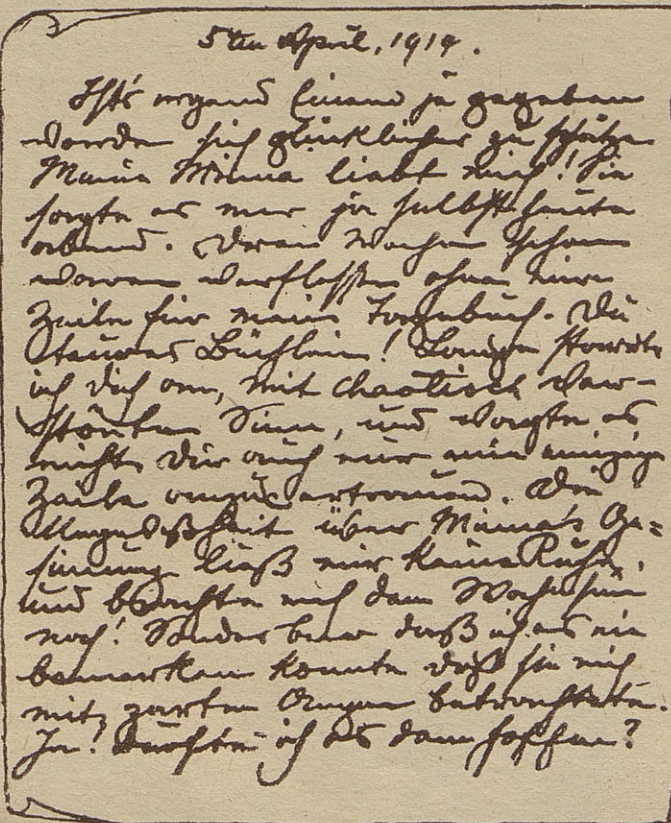 5ten April, 1914.
Ists irgend Einem je gegeben
worden sich glücklicher zu schätzen
Meine Minna liebt mich! Sie
sagte es mir ja selbst heute
abend. Drei Wochen schon
waren verflossen ohne eine
Zeile für mein Tagebuch. Du
teures Büchlein! Lange starrte
ich dich an, mit chaotisch ver-
störtem Sinn, und wagte es
nicht Dir auch nur eine einzige
Zeile anzuvertrauen. Die
Ungewißheit über Minna's Ge-
sinnung ließ mir keine Ruhe,
und brachte mich dem Wahnsinn
nah! Sonderbar daß ich es nie
bemerken konnte daß sie mich
mit zarten Augen betrachtete.
Ja! Durfte ich es denn hoffen?